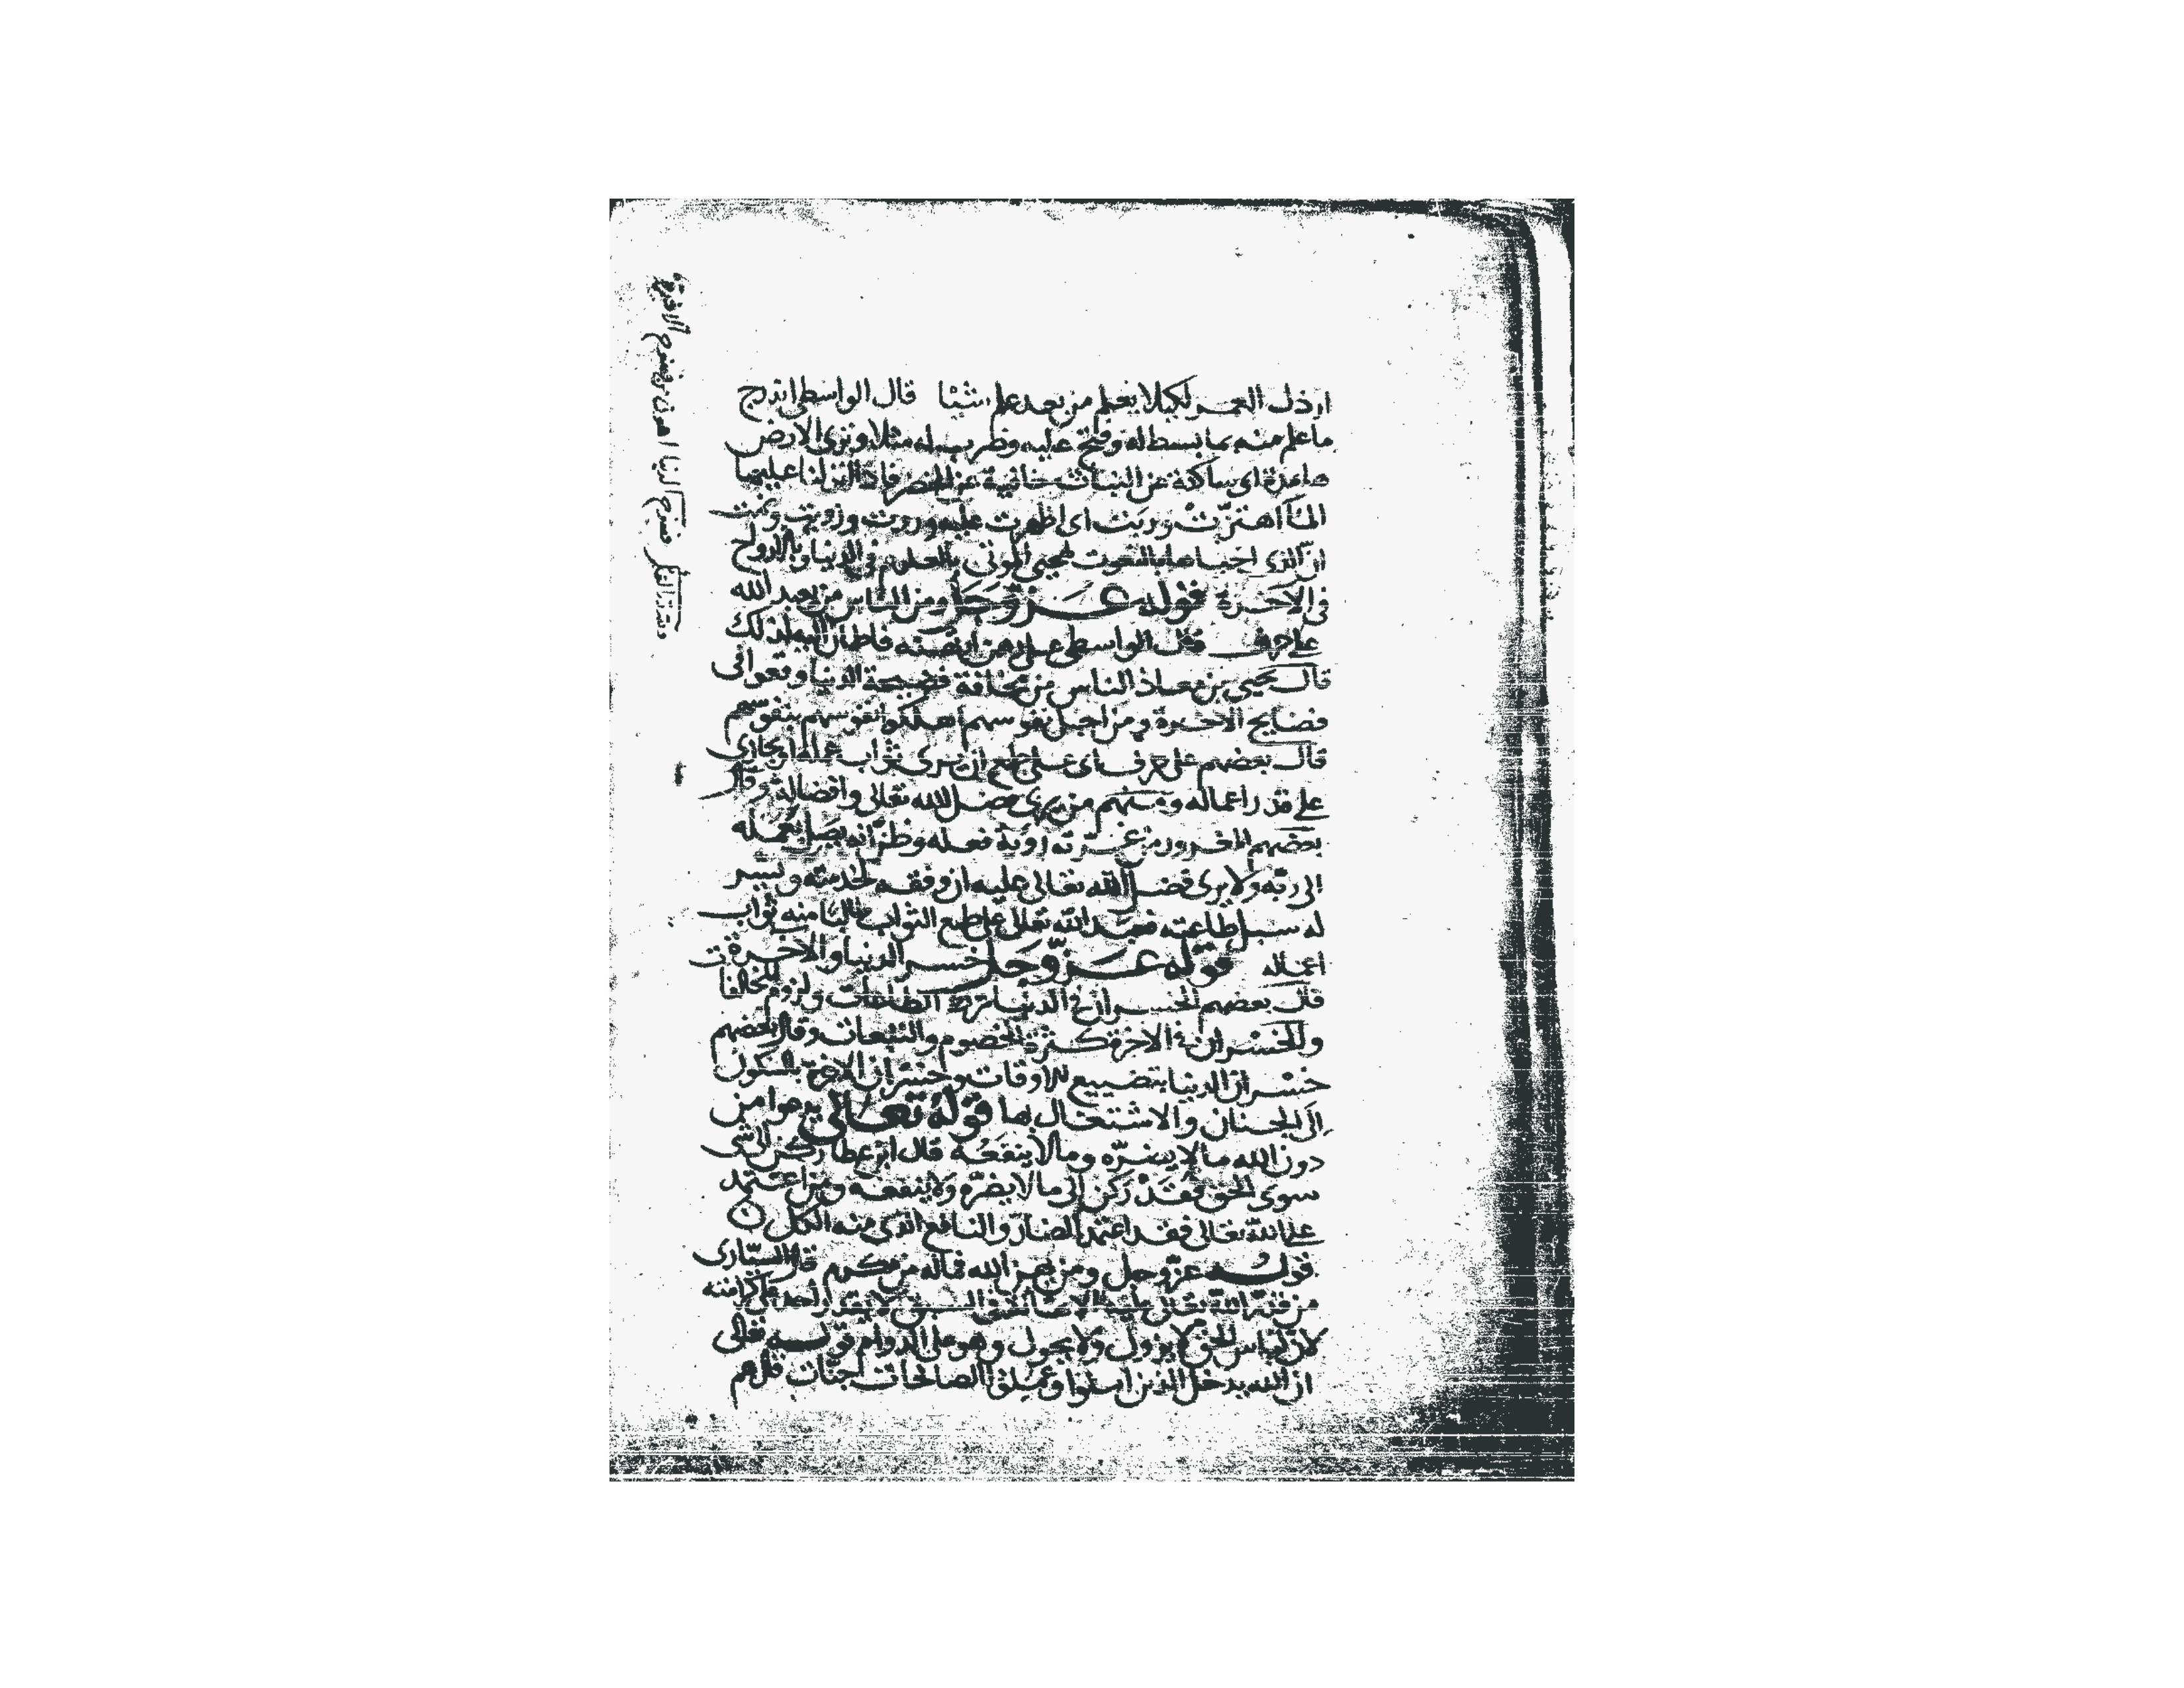 ارذل العمر لكيلا يعلم من بعد علم شيئا قال الواسطي اندرج
ما علم منه بما بسط له وفتح عليه وضرب له مثلا وترى الارض
هامدة اى ساكنة عن النبات خالية عن الخضر فاذا انزلنا عليها
الماء اهتزت وربت اى اظهرت عليه ورويت ونمت
ان الذي احياها لمحيي الموتى في الدنيا
في الاخرة قوله عز وجل ومن الناس من يعبد الله
على حرف قال الواسطي على فاطمان اليه لذلك
قال يحيى بن معاذ الناس من مخافة فضيحة الدنيا وقعوا في
فضايح الاخرة ومن اجل نفوسهم اهلكوا نفوسهم بنفوسهم
قال بعضهم على حرف اى على طمع ان يرى ثواب عمله ويجازى
على قدر اعماله ومنهم من يرى فضل الله تعالى وافضاله وقال
بعضهم المغرور من غرته رؤية فعله وظن انه يصل بعمله
الى ربه ولا يرى فضل الله تعالى عليه ان وفقه لخدمته ويسر
له سبل طاعته فعبد الله تعالى على طمع الثواب طالبا منه ثواب
اعماله قوله عز وجل خسر الدنيا والاخرة
قال بعضهم الخسران في الدنيا ترك الطاعات ولزوم المخالفات
والخسران في الاخرة كثرة الخصوم والتبعات وقال بعضهم
خسران الدنيا بتضييع الاوقات وخسران الاخرة بالسكون
الى الجنان والاشتغال بها قوله تعالى يدعوا من
دون الله ما لا يضره وما لا ينفعه قال ابن عطا من ركن الى شى
سوى الحق فقد ركن الى ما لا يضره ولا ينفعه ومن اعتمد
على الله تعالى فقد اعتمد الضار والنافع الذى منه الكل
قوله عز وجل ومن يهن الله فما له من مكرم قال السيارى
من الله تعالى في السبق لا يقدر احد على كرامته
لان لباس الحق لا يزول ولا يحول وهو على الدوام قوله تعالى
ان الله يدخل الذين امنوا وعملوا الصالحات جنات قال هم